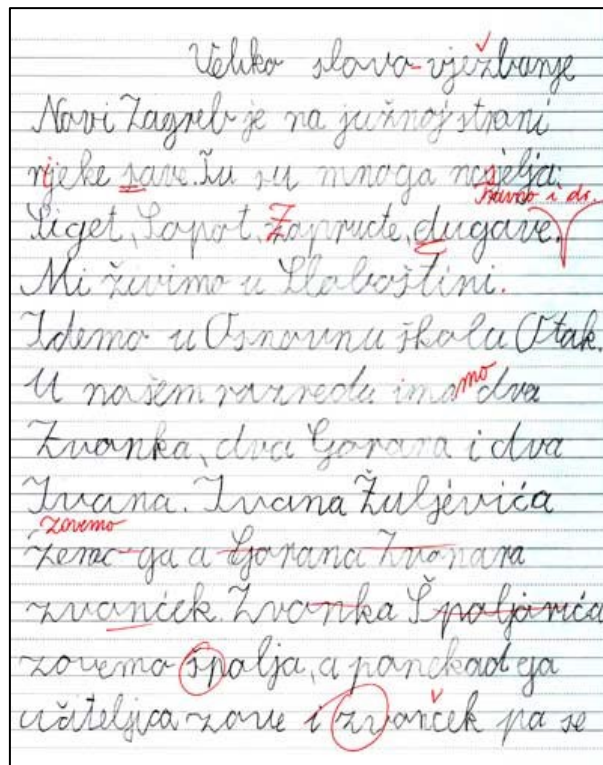 Veliko slovo-vježbanje
Novi Zagreb je na južnoj strani
rijeke save. Tu su mnoga naselja:
ravno i dr.
Siget, Sopot, Zapruđe, dugave.
Mi živimo u Sloboštini.
Idemo u Osnovnu školu Otak.
U našem razredu imamo dva
Zvonka, dva Gorana i dva
Ivana. Ivana Žuljevića
zovemo
ga a Gorana Zvonara
zvonček. Zvonka Špoljarića
zovemo špolja, a ponekad ga
učiteljica zove i zvonček pa se